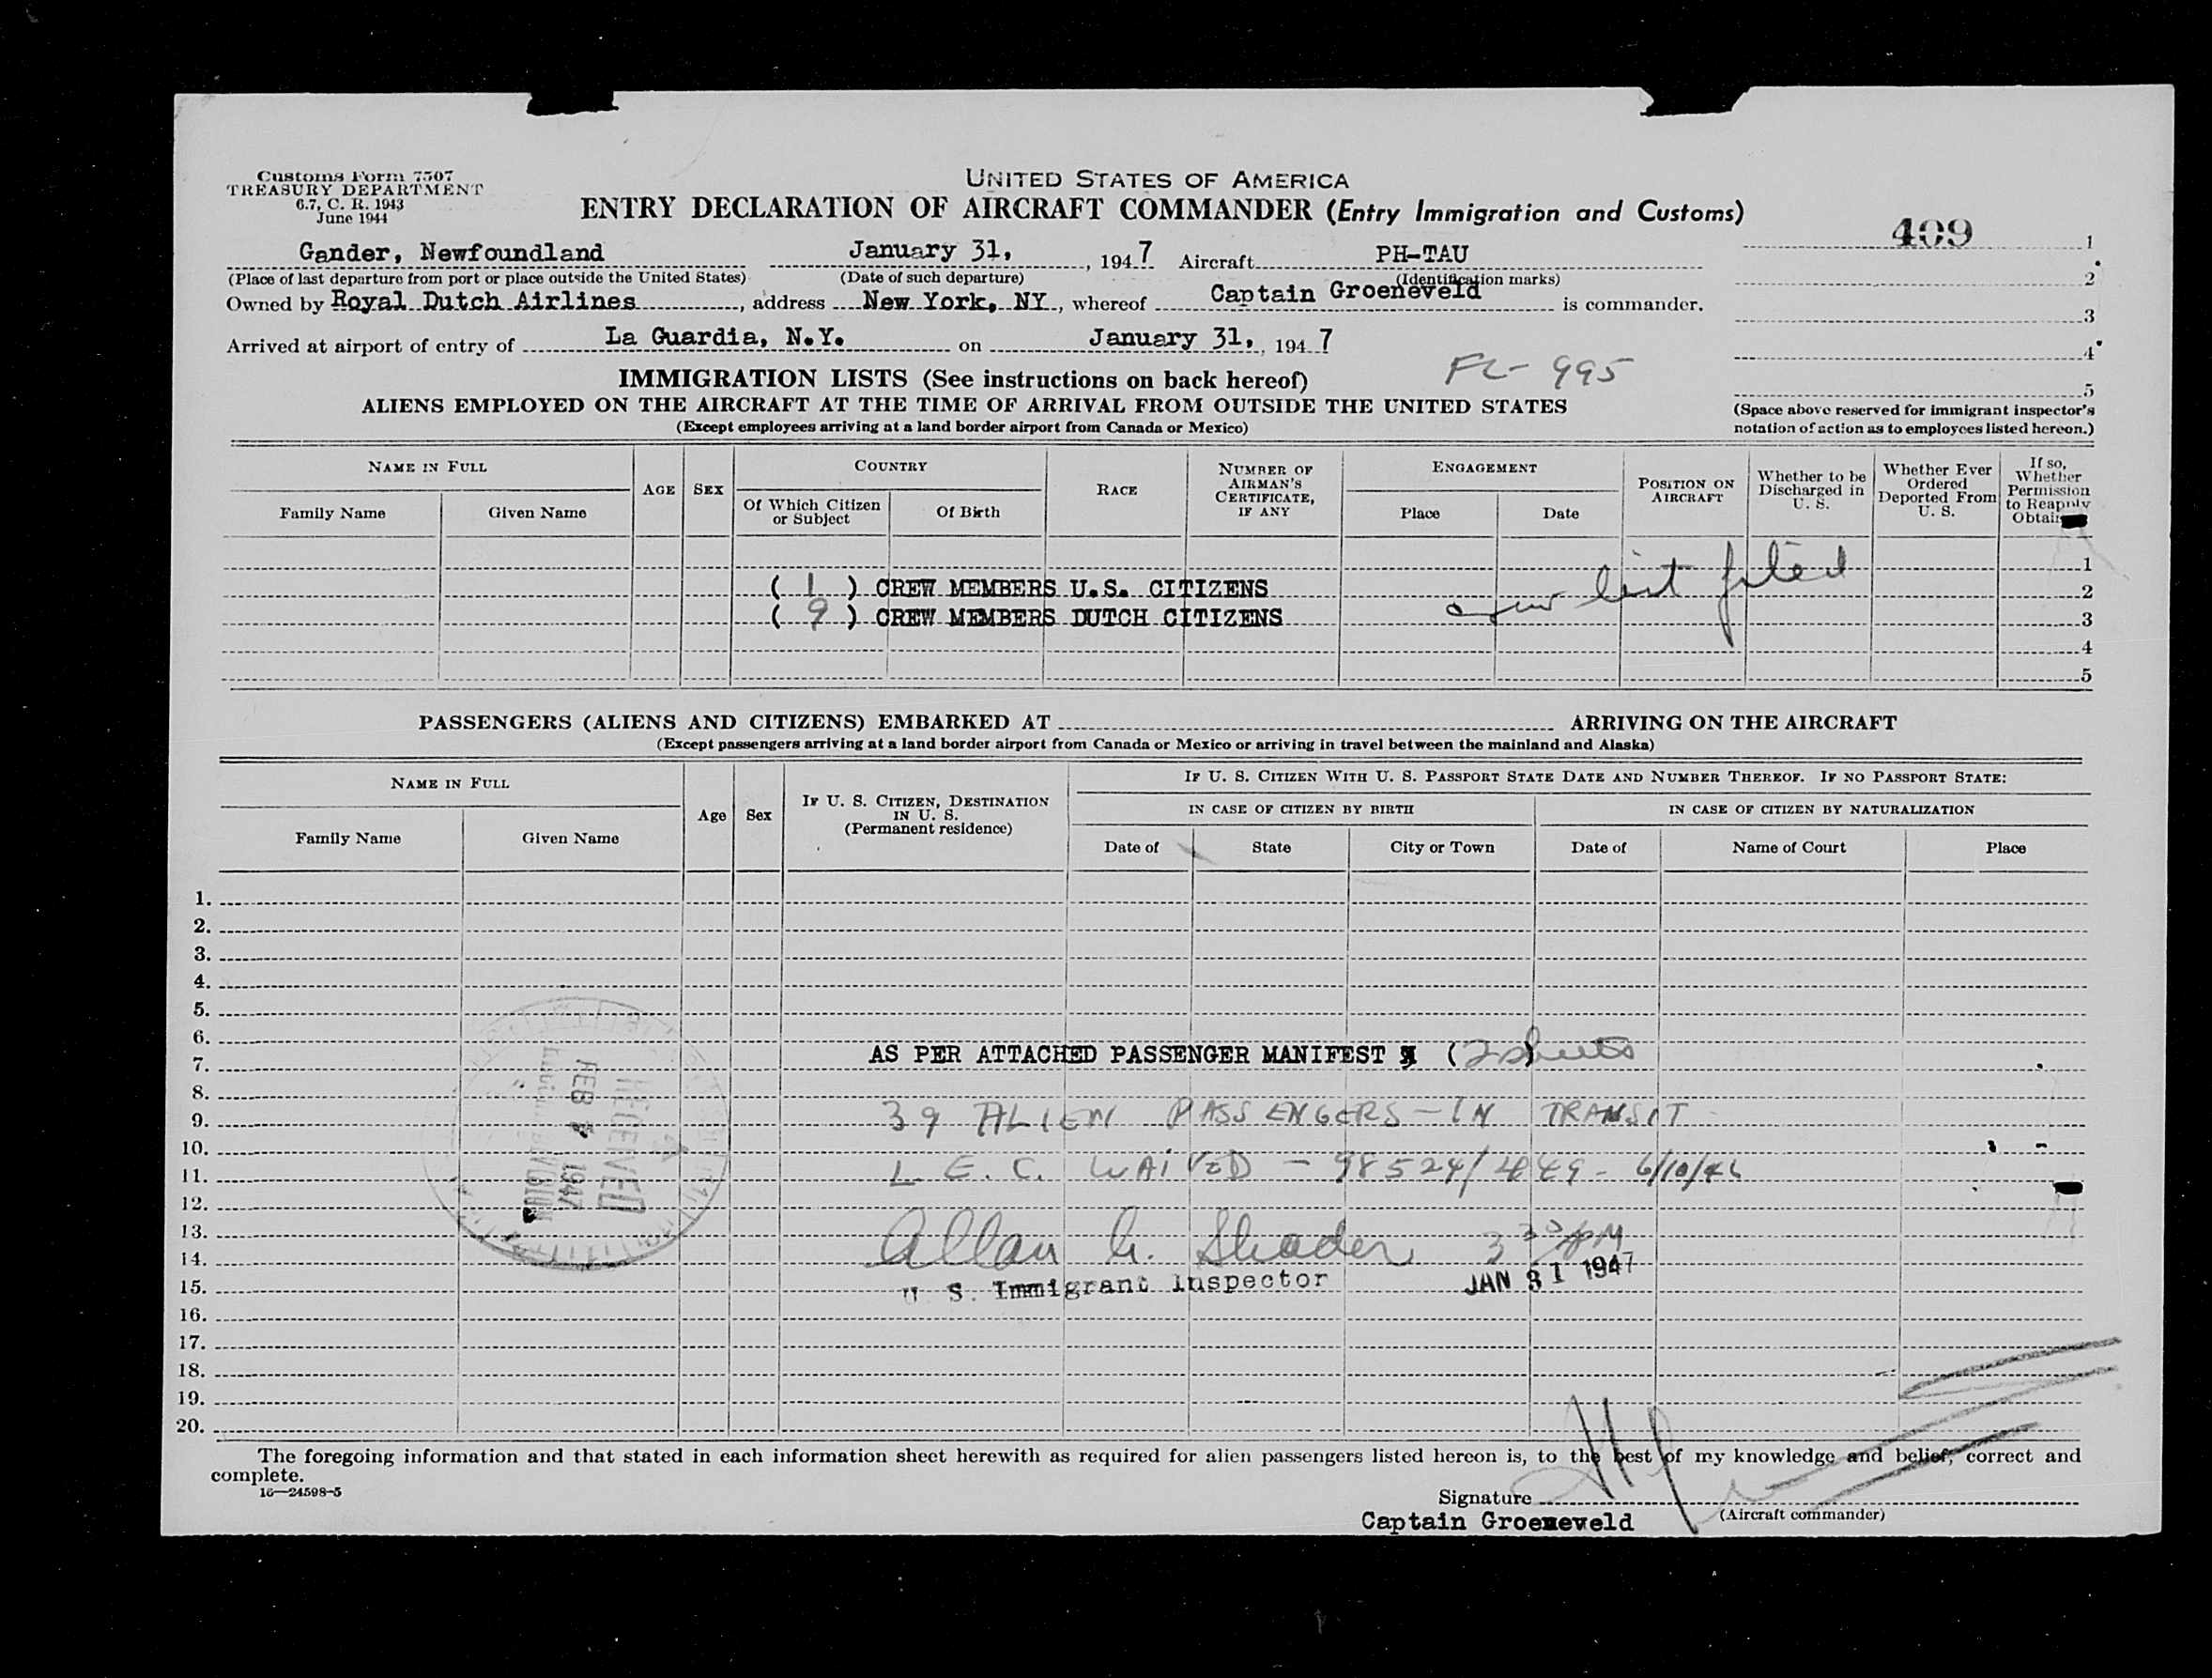 Customs Form 7507
TREASURY DEPARTMENT
6.7, C. R. 1943
June 1944
UNITED STATES OF AMERICA
ENTRY DECLARATION OF AIRCRAFT COMMANDER (Entry Immigration and Customs)
409
Gander, Newfoundland January 31, 1947 Aircraft PH-TAU 1
(Place of last departure from port or place outside the United States) (Date of such departure) (Identification marks) 2
Owned by Royal Dutch Airlines, address New York, NY, whereof Captain Groeneveld is commander. 3
Arrived at airport of entry of La Guardia, N.Y. on January 31, 1947 4
FL-995
5
IMMIGRATION LISTS (See instructions on back hereof)
ALIENS EMPLOYED ON THE AIRCRAFT AT THE TIME OF ARRIVAL FROM OUTSIDE THE UNITED STATES
(Except employees arriving at a land border airport from Canada or Mexico)
(Space above reserved for immigrant inspector's
notation of action as to employees listed hereon.)
NAME IN FULL
Family Name Given Name
AGE SEX
COUNTRY
Of Which Citizen or Subject
Of Birth
RACE
NUMBER OF AIRMAN'S CERTIFICATE, IF ANY
ENGAGEMENT
Place Date
POSITION ON AIRCRAFT
Whether to be Discharged in U. S.
Whether Ever Ordered Deported From U. S.
If so, Whether Permission to Reapply
1
( 1 ) CREW MEMBERS U.S. CITIZENS 2
( 9 ) CREW MEMBERS DUTCH CITIZENS 3
crew list filed
4
5
PASSENGERS (ALIENS AND CITIZENS) EMBARKED AT ARRIVING ON THE AIRCRAFT
(Except passengers arriving at a land border airport from Canada or Mexico or arriving in travel between the mainland and Alaska)
NAME IN FULL
Family Name Given Name
Age Sex
IF U. S. CITIZEN, DESTINATION IN U. S.
(Permanent residence)
IF U. S. CITIZEN WITH U. S. PASSPORT STATE DATE AND NUMBER THEREOF. IF NO PASSPORT STATE:
IN CASE OF CITIZEN BY BIRTH IN CASE OF CITIZEN BY NATURALIZATION
Date of State City or Town Date of Name of Court Place
1.
2.
3.
4.
5.
6.
7. AS PER ATTACHED PASSENGER MANIFEST (2 sheets
8.
9. 39 ALIEN PASSENGERS - IN TRANSIT
10.
11. L. E. C. WAIVED - 98524/ - 6/10/46
12.
13.
14. Allan G. Shader 3 30 PM
15. U. S. Immigrant Inspector JAN 31 1947
16.
17.
18.
19.
20.
RECEIVED
FEB 1947
The foregoing information and that stated in each information sheet herewith as required for alien passengers listed hereon is, to the best of my knowledge and belief, correct and
complete.
16—24598-5
Signature
Captain Groeneveld (Aircraft commander)